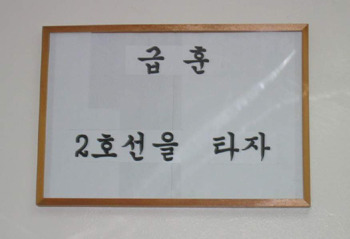 급 훈
2호선을 타자